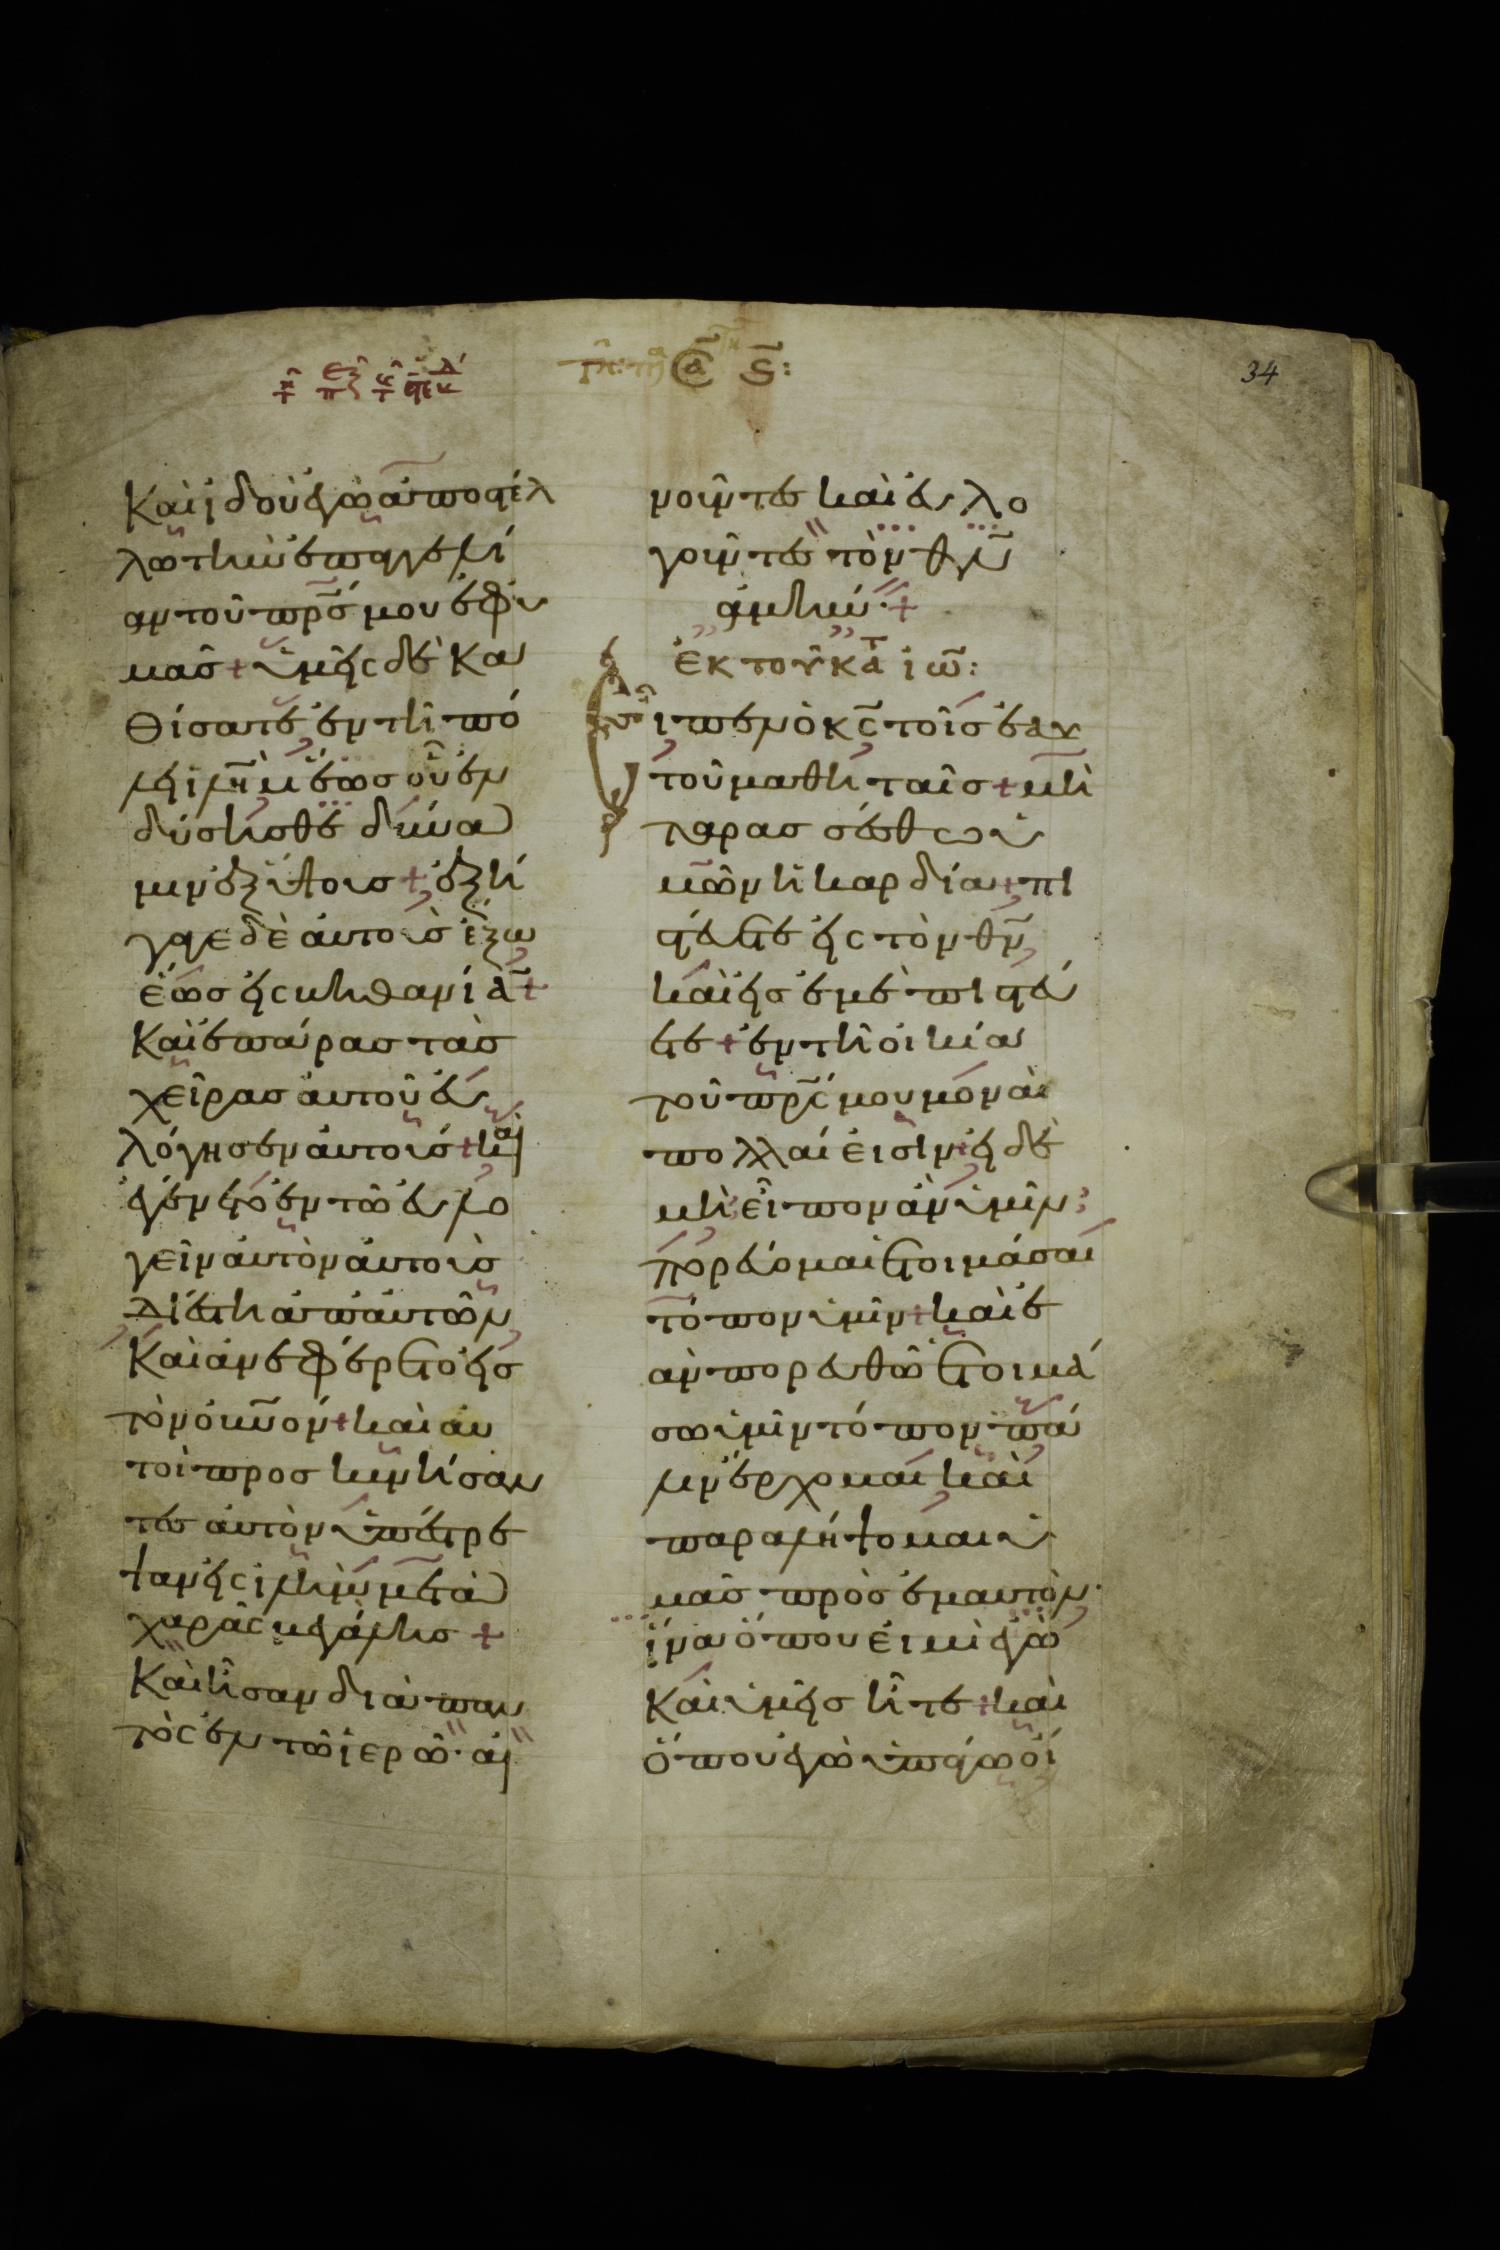 34
Καὶ ἰδοὺ ἐγὼ ἀποστέλ
λω τὴν ἐπαγγελί
αν τοῦ πρς μου ἐφ ὑ
μᾶσ + ὑμεῖς δὲ κα
θίσατε ἐν τῆ πό
λει ιλημ ἕωσ οὗ ἐν
δύσησθε δύνα
μιν ἐξ ὕψουσ + ἐξή
γαγε δὲ ἀυτοὺσ ἔξω
ἕωσ εἰς βηθανίαν +
Καὶ ἐπάρασ τὰσ
χεῖρασ ἀυτοῦ ἐυ
λόγησεν ἀυτούσ + καὶ
ἐγένετο ἐν τῶ ἐυλο
γεῖν ἀυτὸν ἀυτοὺσ
διέστη ἀπ ἀυτῶν
Καὶ ἀνεφέρετο εἰσ
τὸν ὀυνον + καὶ ἀυ
τοὶ προσκυνήσαν
τεσ ἀυτὸν ὑπέστρε
ψαν εἰς ιλημ μετὰ
χαρᾶς μεγάλησ +
Καὶ ἦσαν διὰ παν
τὸς ἐν τῶ ἱερῶ · αἰ
νοῦντεσ καὶ ἐυλο
γοῦντεσ τὸν θν
ἀμήν · +
ἐκ τοῦ κατ ιω :
ιπεν ὁ κς τοῖσ ἑαυ
τοῦ μαθηταῖσ + μὴ
ταρασσέσθω ὑ
μῶν ἡ καρδία + πι
στέυετε εἰς τὸν θν
καὶ εἰσ ἐμὲ πιστέυ
ετε + ἐν τῆ ὀικία
τοῦ πρς μου μόναι
πολλαί εἰσιν + εἰ δὲ
μὴ εἶπον ἂν ὑμῖν ;
πορέυομαι ἑτοιμάσαι
τόπον ὑμῖν + καὶ ἐ
ὰν πορευθῶ ἑτοιμά
σω ὑμῖν τόπον πά
λιν ἔρχομαι καὶ
παραλήψομαι ὑ
μᾶσ πρὸσ ἐμαυτόν ·
ἵνα ὅπου εἰμὶ ἐγὼ
Καὶ ὑμεῖσ ἦτε + καὶ
ὅπου ἐγὼ ὑπάγω οἴ